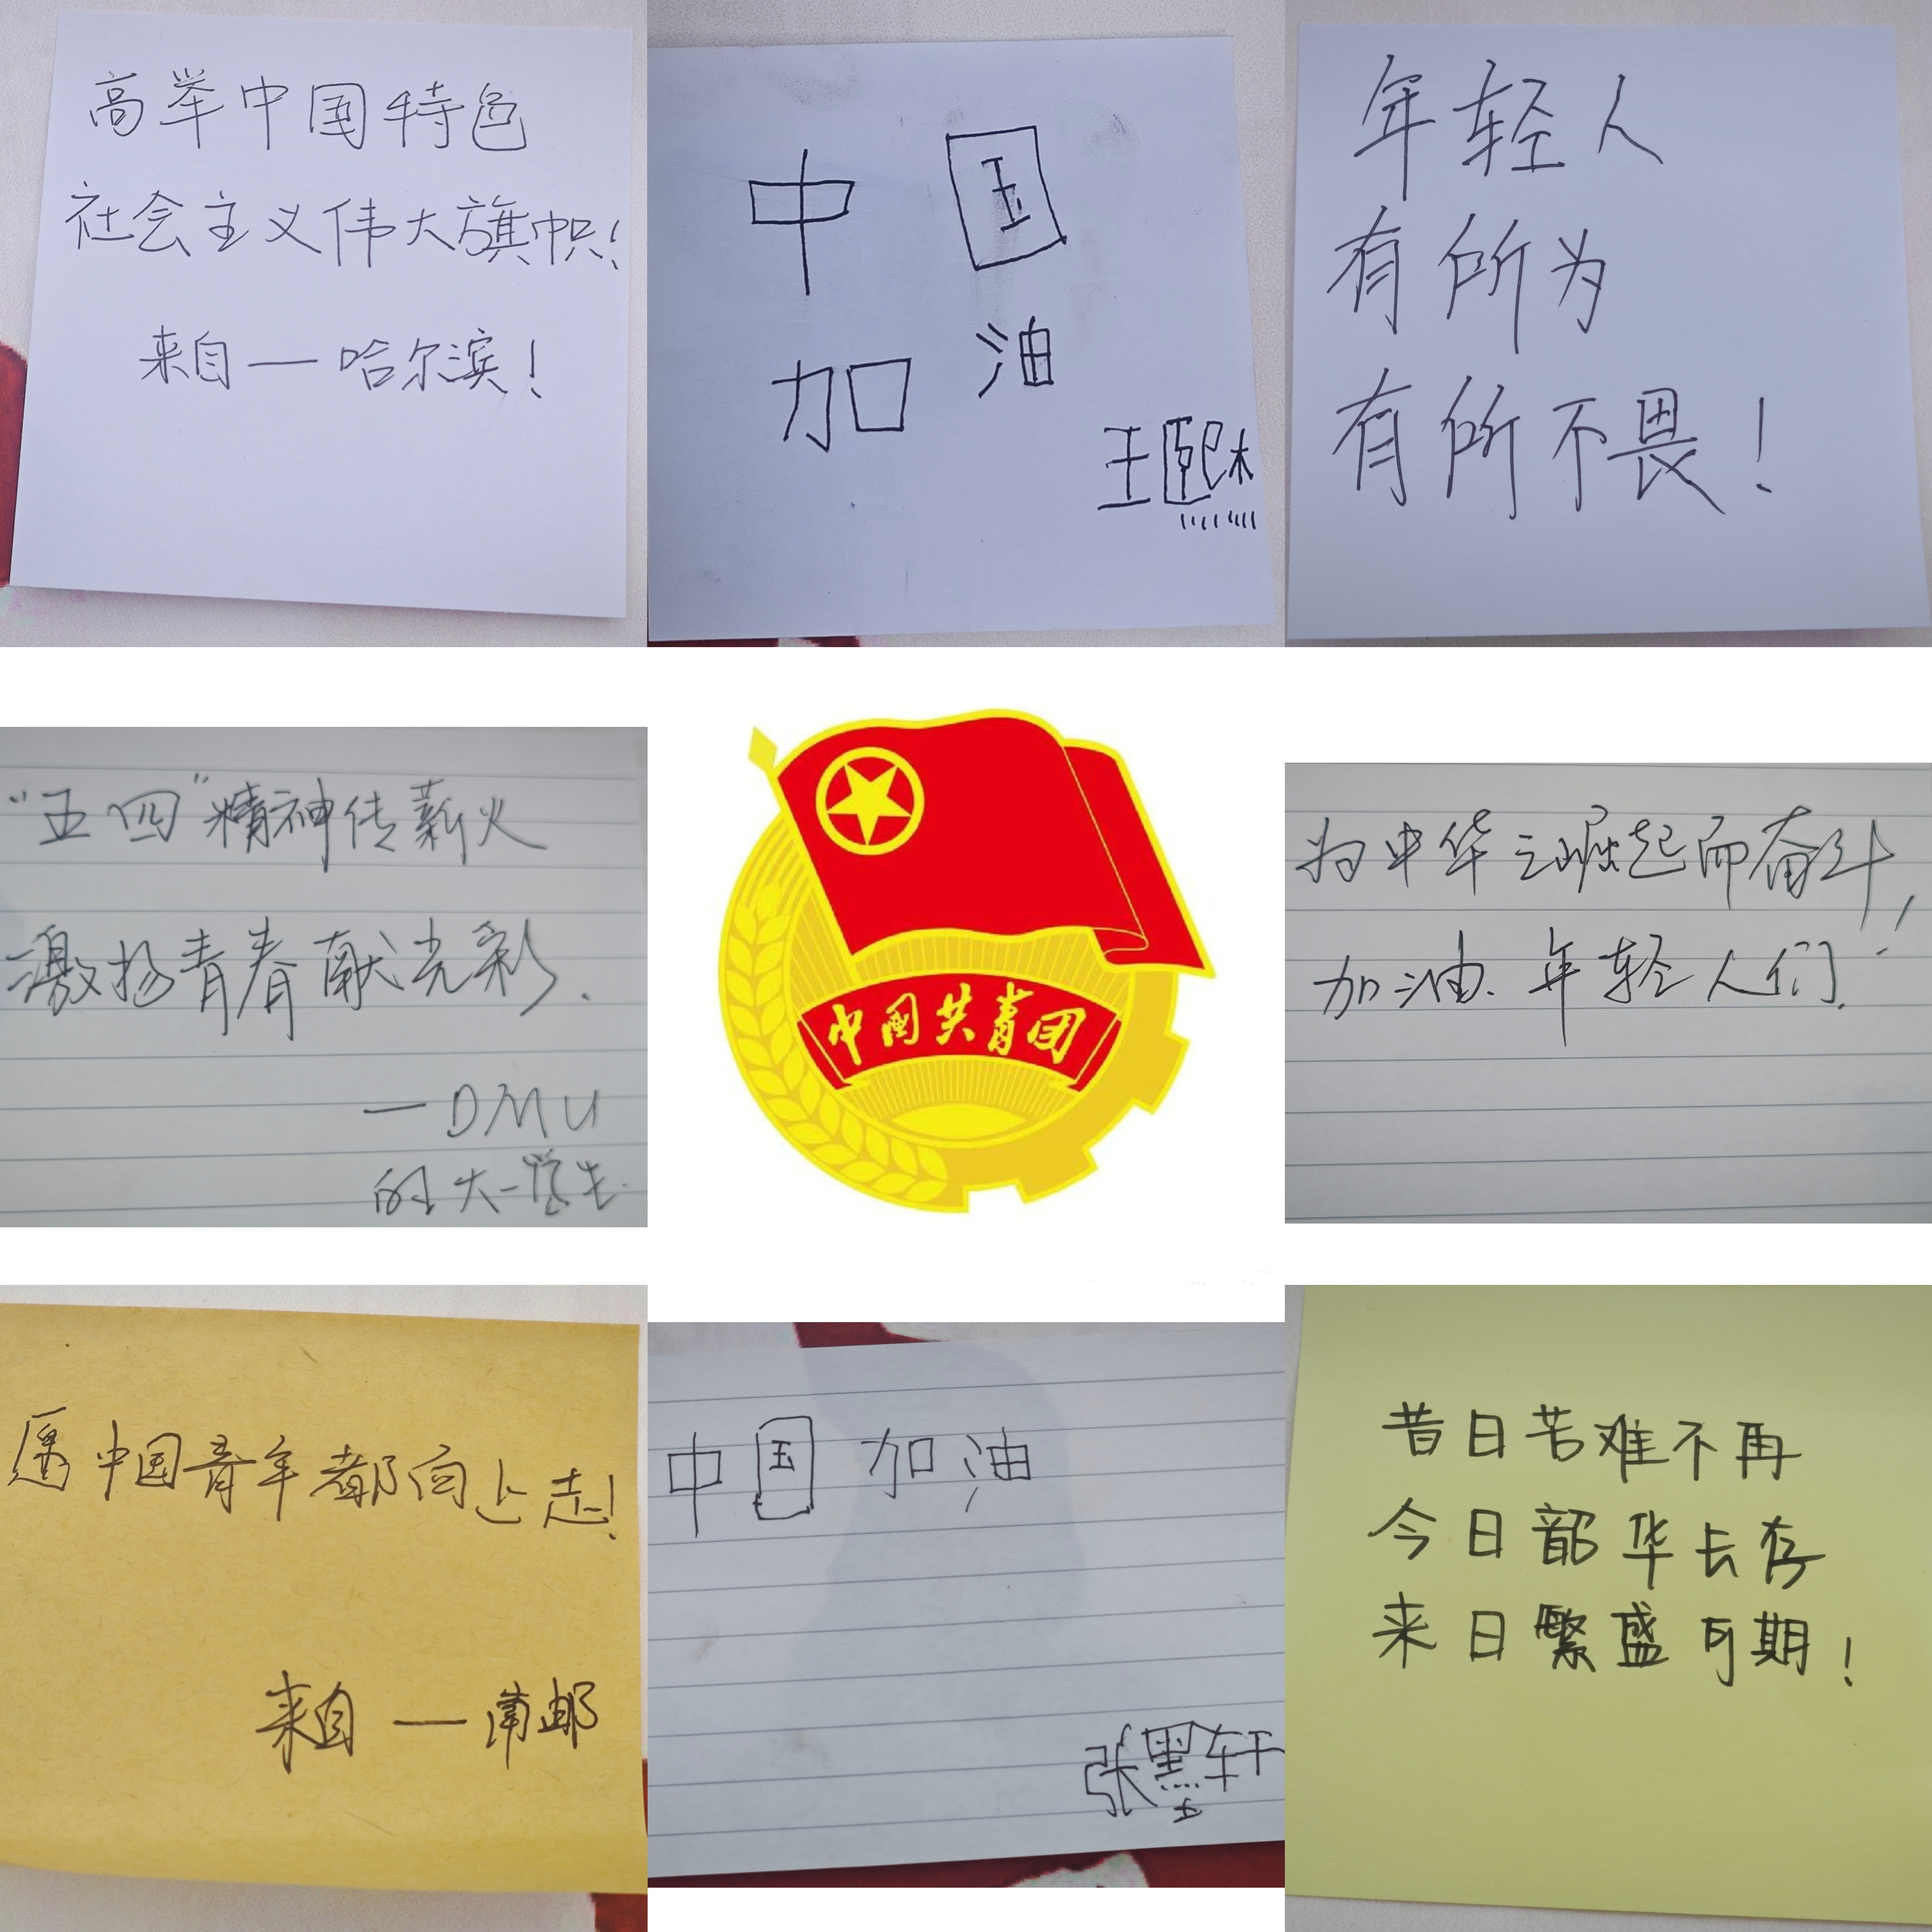 高举中国特色
社会主义伟大旗帜！
来自—哈尔滨！
中国
加油
王熙
年轻人
有所为
有所不畏！
"五四"精神传薪火
激扬青春献光彩.
—DMU
的大一学生.
中国共青团
为中华之崛起而奋斗,
加油、年轻人们！
愿中国青年都向上走!
来自—南邮
中国加油
张墨轩
昔日苦难不再
今日韶华长存
来日繁盛可期!